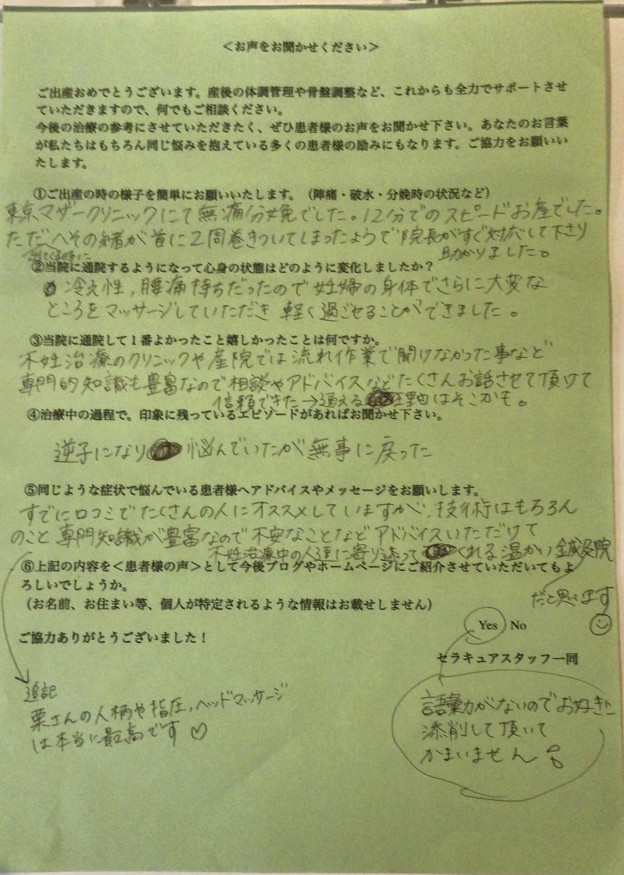 ＜お声をお聞かせください＞
ご出産おめでとうございます。産後の体調管理や骨盤調整など、これからも全力でサポートさせ
ていただきますので、何でもご相談ください。
今後の治療の参考にさせていただきたく、ぜひ患者様のお声をお聞かせ下さい。あなたのお言葉
が私たちはもちろん同じ悩みを抱えている多くの患者様の励みにもなります。ご協力をお願いい
たします。
①ご出産の時の様子を簡単にお願いいたします。（陣痛・破水・分娩時の状況など）
東京マザークリニックにて無痛分娩でした。12分でのスピードお産でした。
ただへその緒が首に2周巻きついてしまったようで院長がすぐ対応して下さり
出てくる時に
助かりました。
②当院に通院するようになって心身の状態はどのように変化しましたか？
冷え性、腰痛持ちだったので妊婦の身体でさらに大変な
ところをマッサージしていただき軽く過ごせることができました。
③当院に通院して１番よかったこと嬉しかったことは何ですか。
不妊治療のクリニックや産院では流れ作業で聞けなかった事など
専門的知識も豊富なので相談やアドバイスなどたくさんお話させて頂けて
信頼できた→通える理由はそこかも。
④治療中の過程で、印象に残っているエピソードがあればお聞かせ下さい。
逆子になり悩んでいたが無事に戻った
⑤同じような症状で悩んでいる患者様へアドバイスやメッセージをお願いします。
すでに口コミでたくさんの人にオススメしていますが、技術はもちろん
のこと専門知識が豊富なので不安なことなどアドバイスいただけて
不妊治療中の人達に寄り添ってくれる温かい鍼灸院
だと思います
⑥上記の内容を＜患者様の声＞として今後ブログやホームページにご紹介させていただいてもよ
ろしいでしょうか。
（お名前、お住まい等、個人が特定されるような情報はお載せしません）
Yes No
ご協力ありがとうございました！
セラキュアスタッフ一同
追記
栗さんの人柄や指圧、ヘッドマッサージ
は本当に最高です♡
語彙力がないのでお好きに
添削して頂いて
かまいません